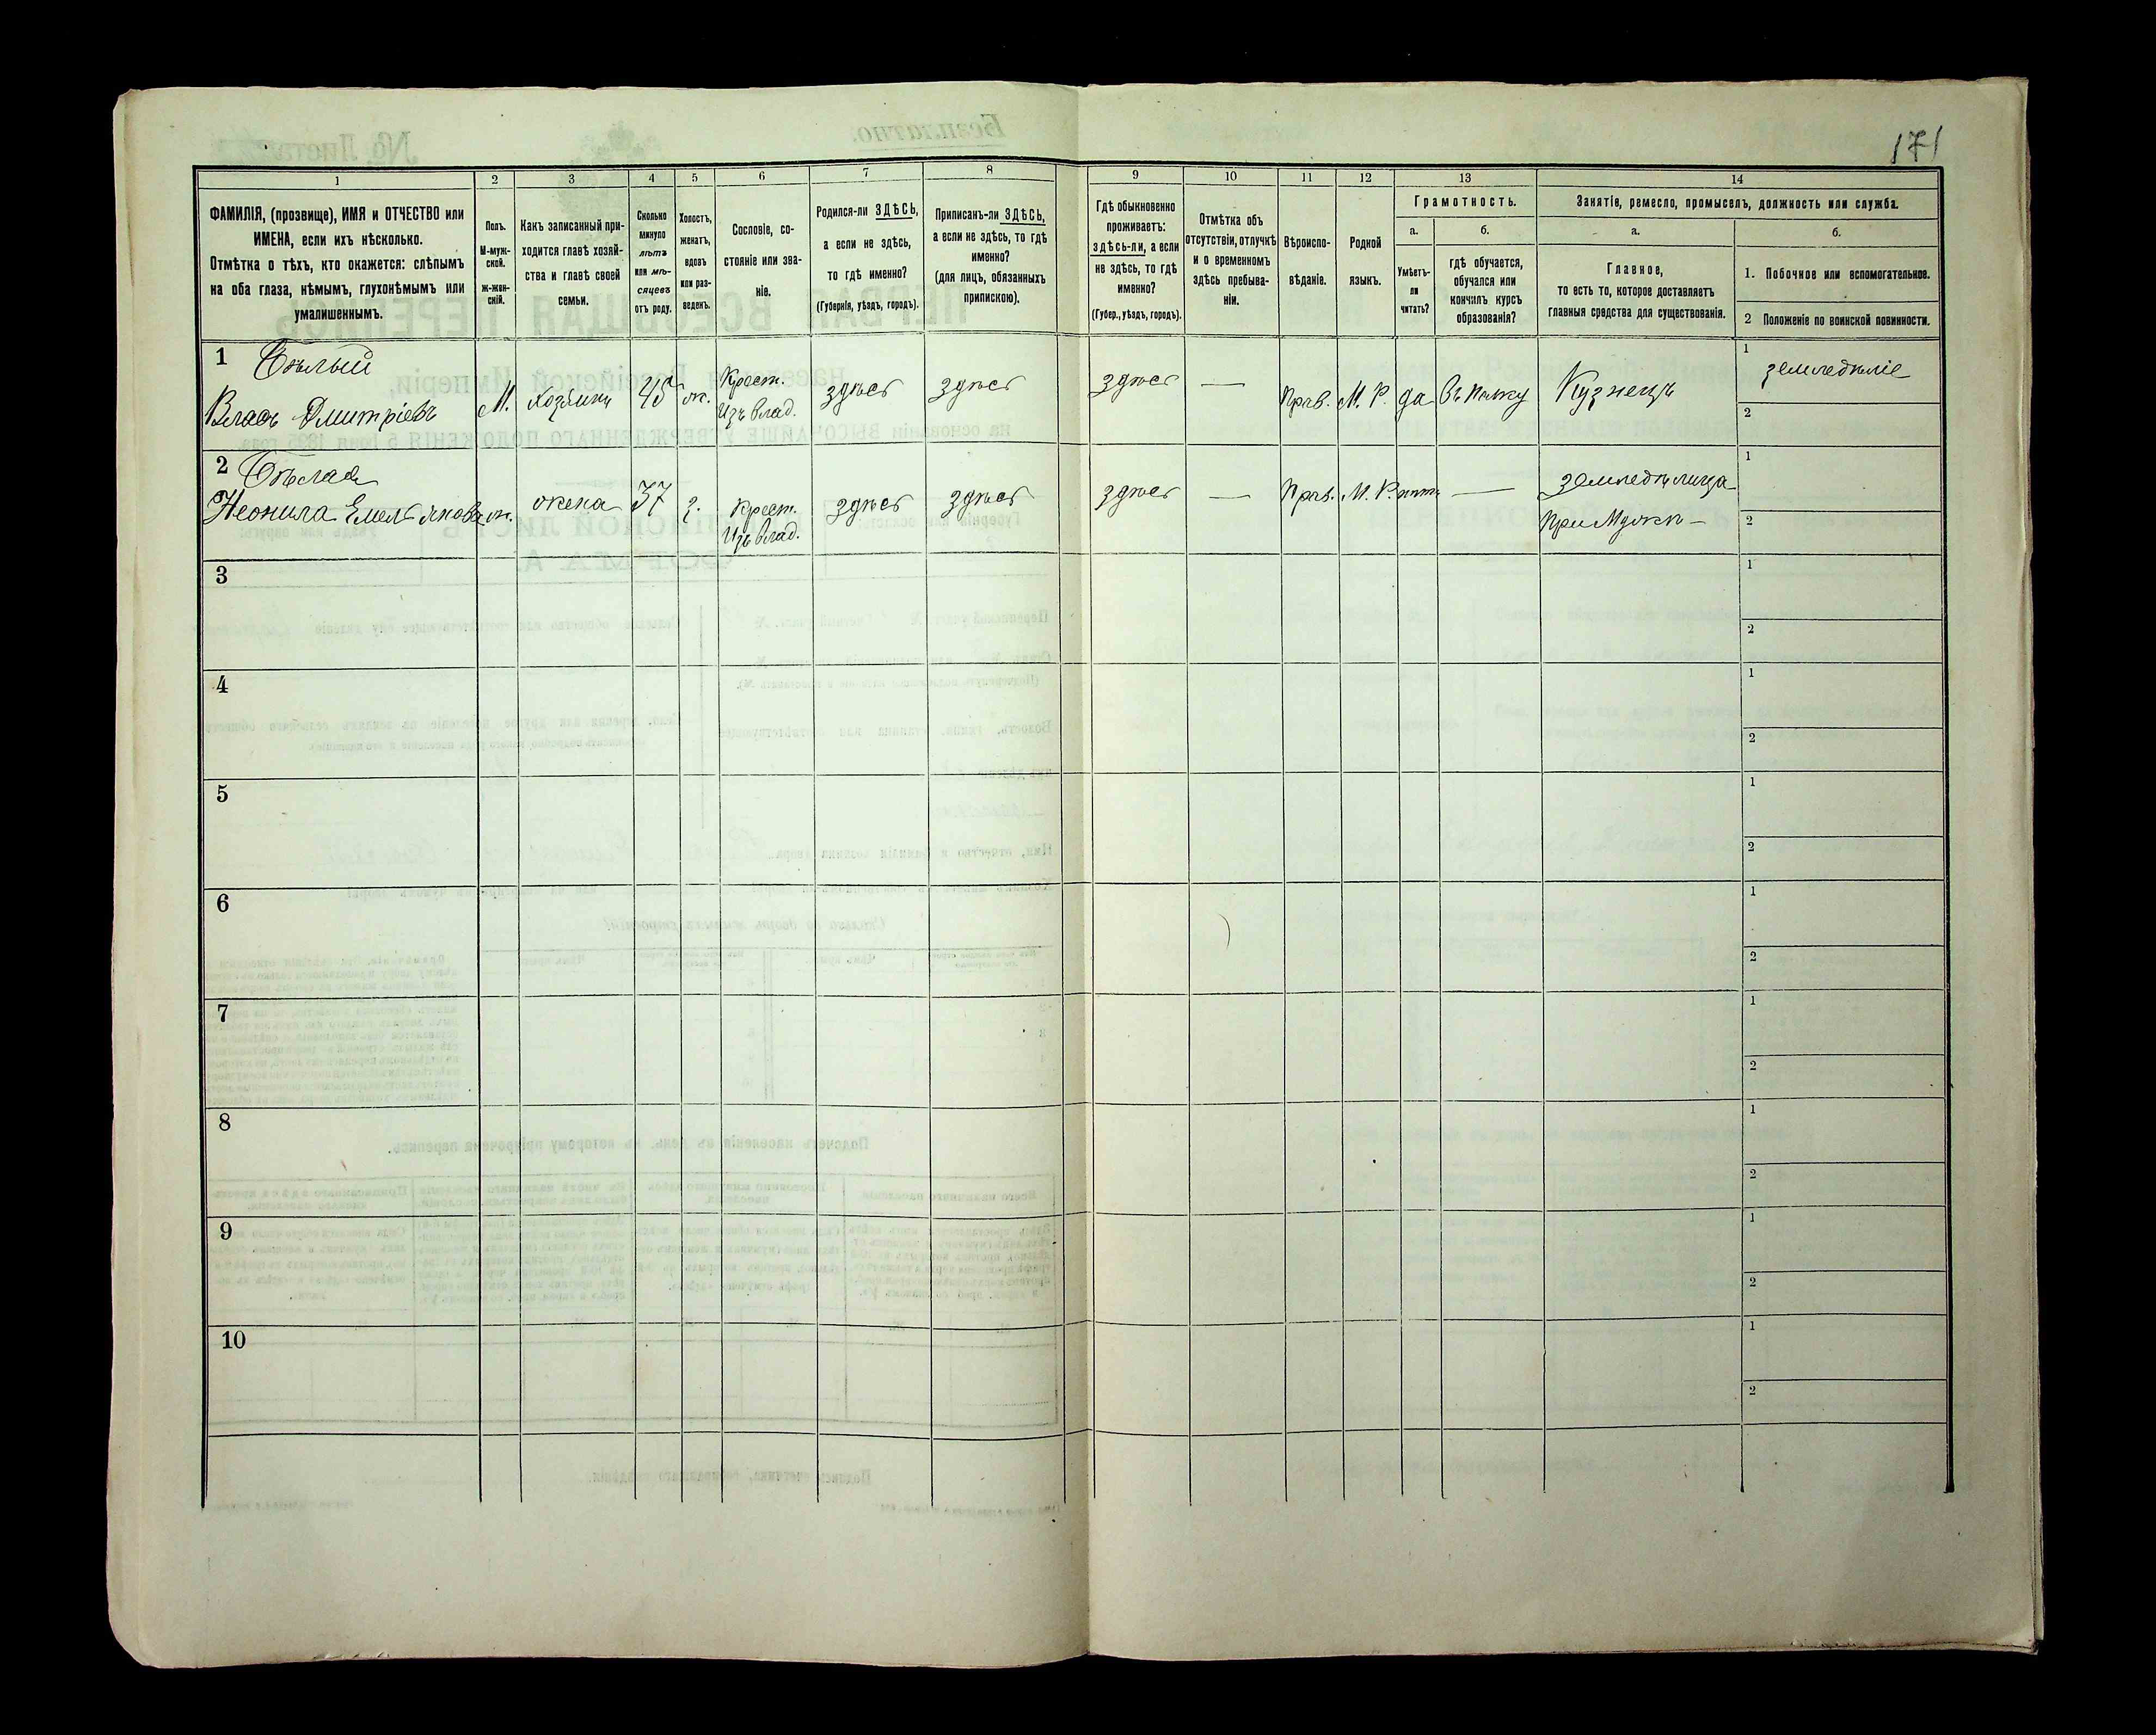 171
1
2
3
4
5
6
7
8
9
10
11
12
13
14
ФАМИЛІЯ, (прозвище), ИМЯ и ОТЧЕСТВО или
ИМЕНА, если ихъ нѣсколько.
Отмѣтка о тѣхъ, кто окажется: слѣпымъ
на оба глаза, нѣмымъ, глухонѣмымъ или
умалишеннымъ.
Полъ.
М-муж-
ской.
ж-жен-
скій.
Какъ записанный при-
ходится главѣ хозяй-
ства и главѣ своей
семьи.
Сколько
минуло
лѣтъ
или мѣ-
сяцевъ
отъ роду.
Холостъ,
женатъ,
вдовъ
или раз-
веденъ.
Сословіе, со-
стояніе или зва-
ніе.
Родился-ли ЗДѢСЬ,
а если не здѣсь,
то гдѣ именно?
(Губернія, уѣздъ, городъ).
Приписанъ-ли ЗДѢСЬ,
а если не здѣсь, то гдѣ
именно?
(для лицъ, обязанныхъ
припискою).
Гдѣ обыкновенно
проживаетъ:
здѣсь-ли, а если
не здѣсь, то гдѣ
именно?
(Губер., уѣздъ, городъ).
Отмѣтка объ
отсутствіи, отлучкѣ
и о временномъ
здѣсь пребыва-
ніи.
Вѣроиспо-
вѣданіе.
Родной
языкъ.
Грамотность.
а.
б.
Умѣетъ-
ли
читать?
гдѣ обучается,
обучался или
кончилъ курсъ
образованія?
Занятіе, ремесло, промыселъ, должность или служба.
а.
б.
Главное,
то есть то, которое доставляетъ
главныя средства для существованія.
1. Побочное или вспомогательное.
2 Положеніе по воинской повинности.
1 Бѣлый
Власъ Дмитріевъ
М.
Хозяинъ
45
ж.
Крест.
Изъ влад.
здѣсь
здѣсь
здѣсь
—
Прав.
М. Р.
да
Въ полку
Кузнецъ
1 земледѣліе
2
2 Бѣлая
Неонила Емельянова
ж.
жена
37
з.
Крест.
Изъ влад.
здѣсь
здѣсь
здѣсь
—
Прав.
М. Р.
нѣтъ
—
земледѣлица
при Мужѣ —
1
2
3
1
2
4
1
2
5
1
2
6
1
2
7
1
2
8
1
2
9
1
2
10
1
2